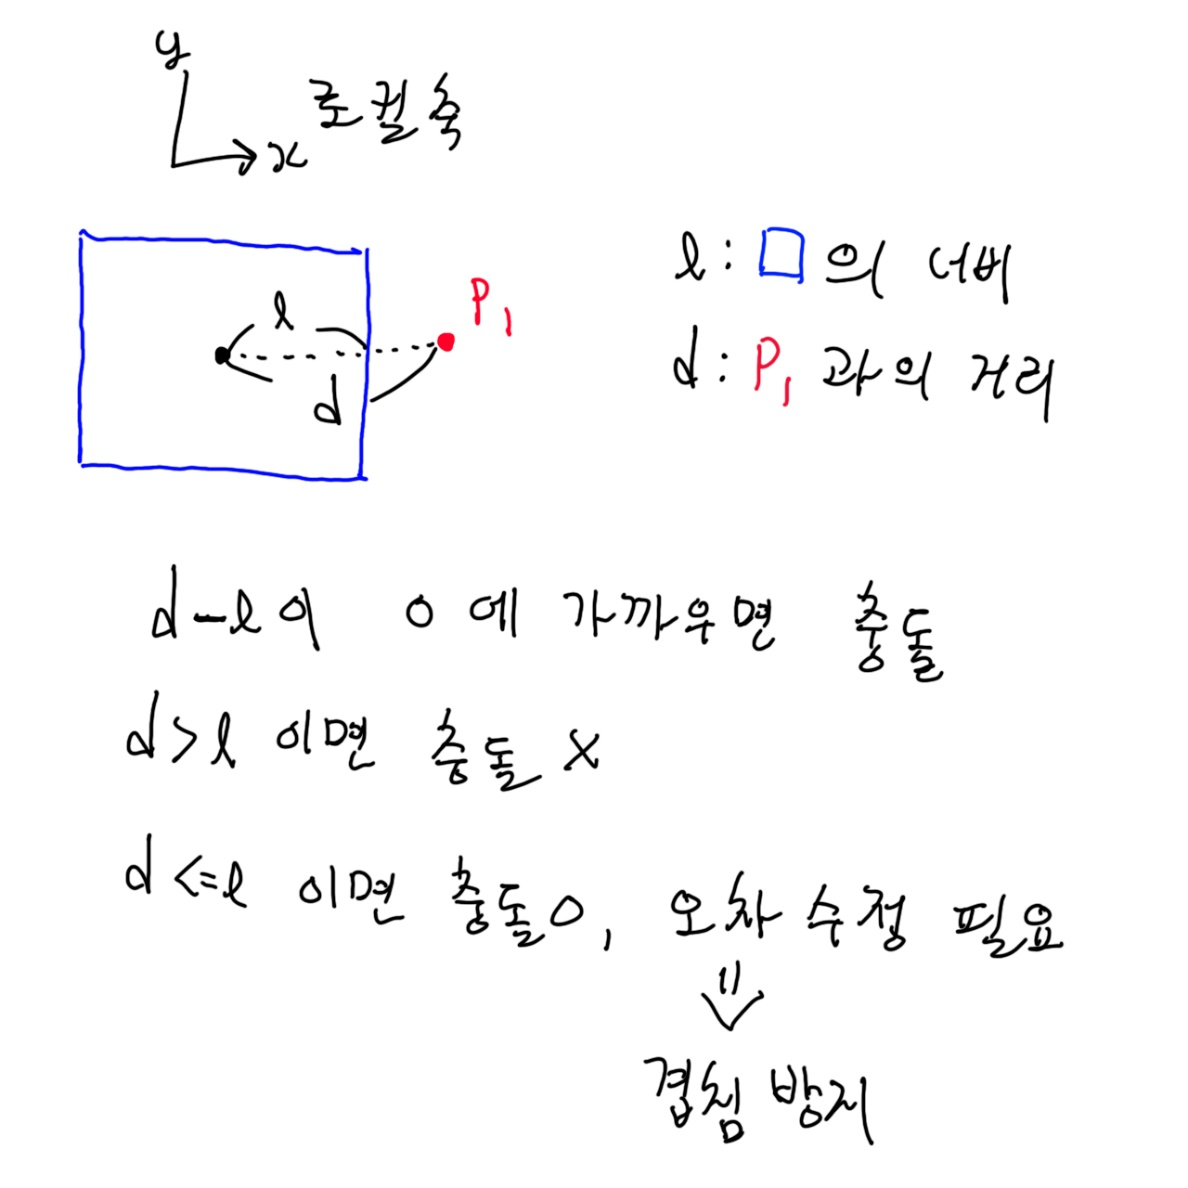 y
x 로컬축
l : □의 너비
d : P₁과의 거리
l
P₁
d
d-l이 0에 가까우면 충돌
d>l 이면 충돌 X
d<=l 이면 충돌O, 오차 수정 필요
겹침 방지